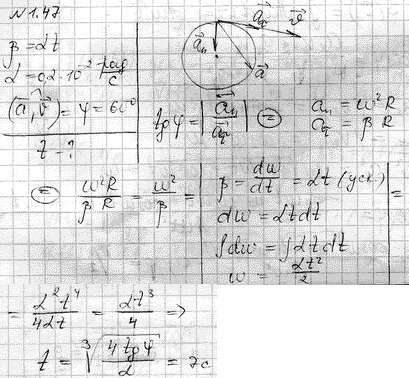 № 1.47
β = αt
α = 0,2·10⁻² рад/с
(a⃗, v⃗) = φ = 60°
t - ?
a⃗ₙ a⃗τ v⃗ a⃗
tg φ = |a⃗ₙ / a⃗τ| ⊜ aₙ = ω²R
aτ = βR
⊜ ω²R / βR = ω² / β = | β = dω/dt = αt (усл.) | =
dω = αt dt
∫dω = ∫αt dt
ω = αt²/2
= α²t⁴ / 4αt = αt³ / 4 =>
t = ∛(4 tg φ / α) = 7с